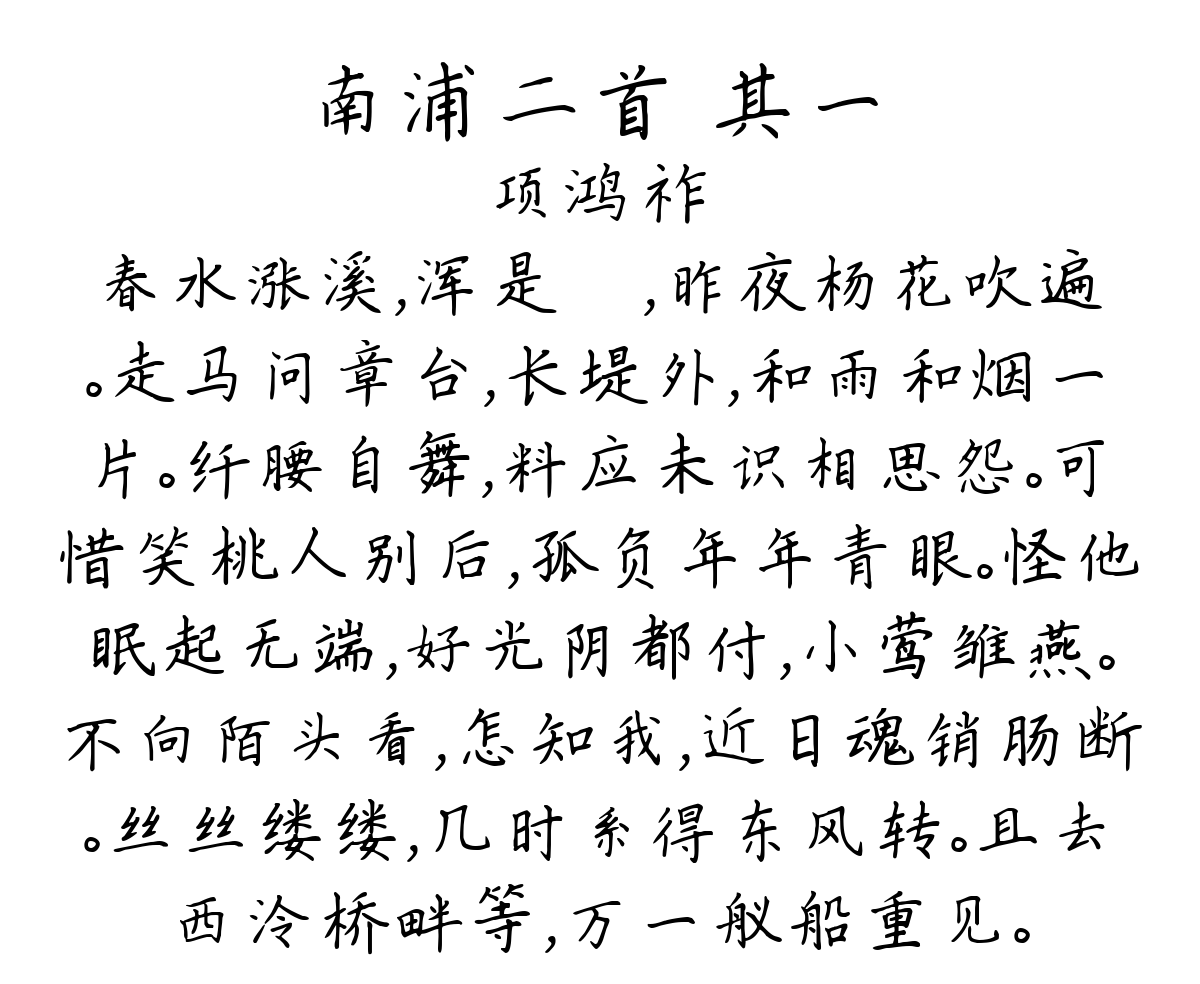 南浦二首 其一
项鸿祚
春水涨溪,浑是 ,昨夜杨花吹遍
。走马问章台,长堤外,和雨和烟一
片。纤腰自舞,料应未识相思怨。可
惜笑桃人别后,孤负年年青眼。怪他
眠起无端,好光阴都付,小莺雏燕。
不向陌头看,怎知我,近日魂销肠断
。丝丝缕缕,几时系得东风转。且去
西泠桥畔等,万一舣船重见。